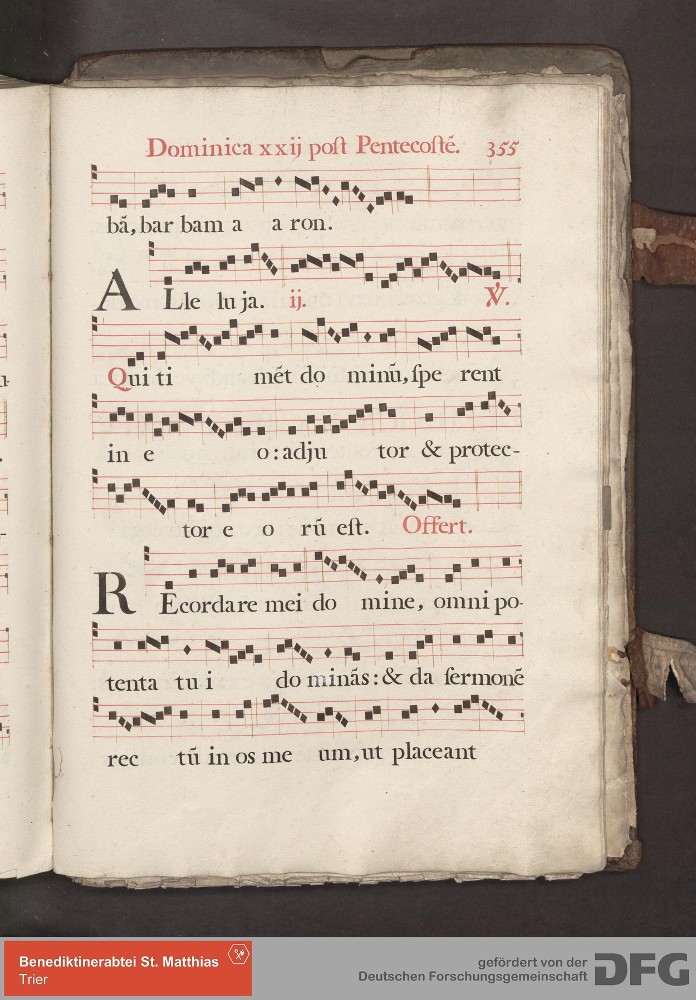 Dominica xxij poſt Pentecoſtẽ. 355
bã, bar bam a a ron.
ALle lu ja. ij. ℣.
Qui ti mẽt do minũ, ſpe rent
in e o: adju tor & protec-
tor e o rũ eſt. Offert.
REcordare mei do mine, omni po-
tenta tu i do minãs: & da ſermonẽ
rec tũ in os me um, ut placeant
Benediktinerabtei St. Matthias
Trier
gefördert von der
Deutschen Forschungsgemeinschaft
DFG